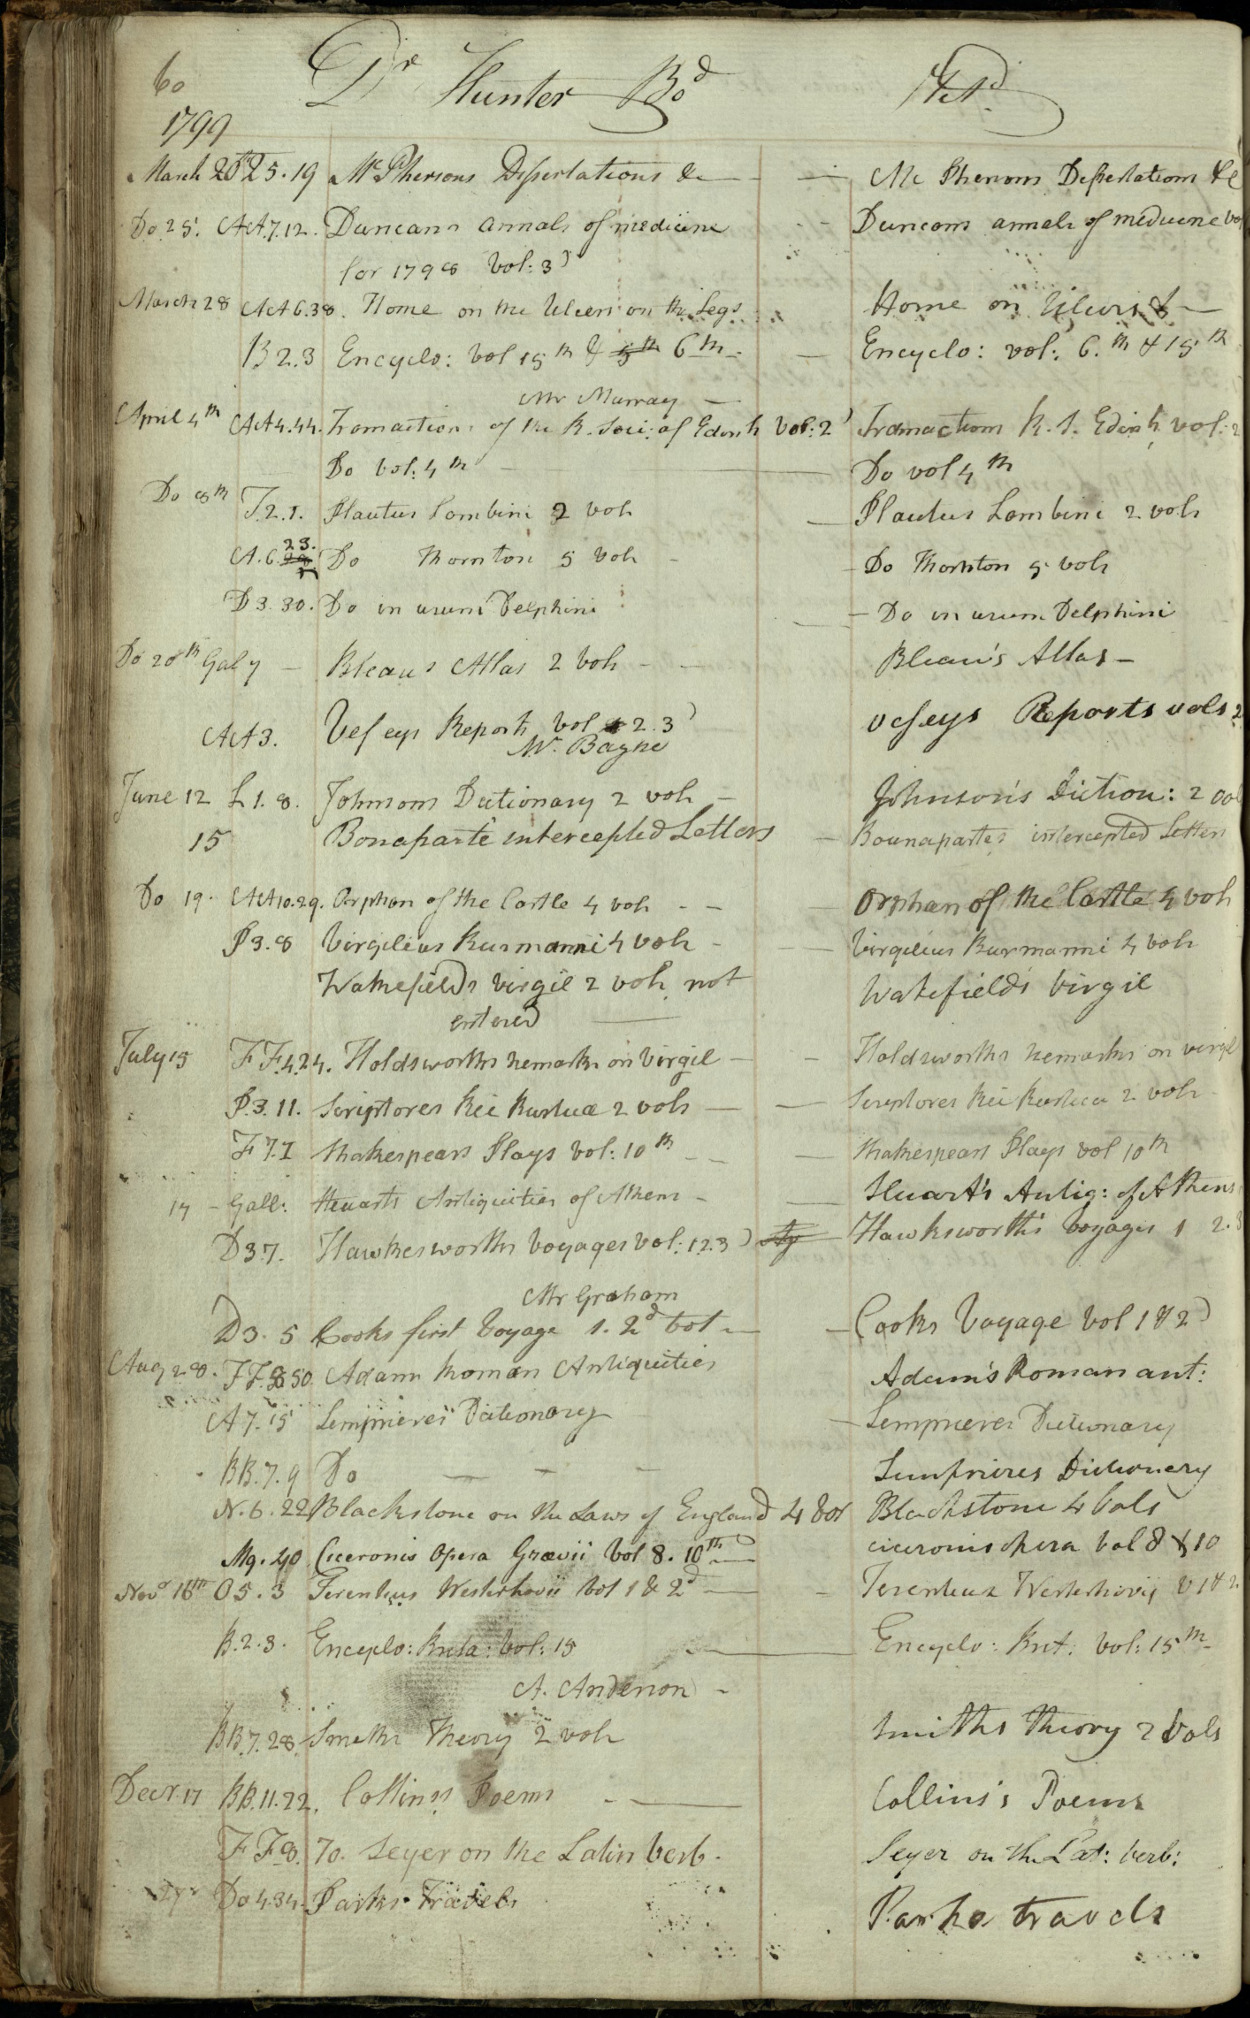 60 Dr Hunter Bod Retd
1799
March 20th Z5.19 McPhersons Dissertations &c — Mc Phersons Dissertations &c
Do 25. AA.7.12. Duncans annals of medicine - - Duncans annals of medicine vol
for 1798 Vol: 3d
March 28 AA 6.38. Home on the Ulcers on the Legs Home on Ulcers &—
B 2.3 Encyclo: Vol 15th & 5th 6th — Encyclo: vol: 6.th & 15th
Mr Murray —
April 4th AA4.44. Transactions of the R. Soci: of Edinh Vol: 2d Transactions R. S. Edinh vol: 2
Do Vol: 4th — Do vol 4th
Do 8th T.2.1. Plautus Lambini 2 vols — Plautus Lambini 2 vols
A.6. 23. Do Thornton 5 vols - Do Thornton 5 vols
D3.30. Do in usum Delphini — Do in usum Delphini
Do 20th Galy — Bleaus Atlas 2 vols - - Bleau's Atlas —
AA3. Veseys Reports Vol 2.3d Veseys Reports vols 2
Mr. Bayne
June 12 L 1.8. Johnsons Dictionary 2 vols — Johnson's Diction: 2 vol
15 Bonaparte intercepted Letters — Bounapartes intercepted Letters
Do 19. AA10.29. Orphan of the Castle 4 vols - - Orphan of the Castle 4 vols
P3.8 Virgilius Burmanni 4 vols - Virgilius Burmanni 4 vols
Wakefields Virgil 2 vols not Wakefields Virgil
entered
July 15 FF.4.24. Holdsworths remarks on Virgil — Holdsworths remarks on virgil
P.3.11. Scriptores Rei Rusticæ 2 vols — Scriptores Rei Rusticæ 2 vols
F 7.1 Shakespears Plays Vol: 10th - - Shakespears Plays vol 10th
17 - Gall: Stuarts Antiquities of Athens - Stuart's Antiq: of Athens
D3.7. Hawkesworths Voyages Vol: 1.2.3d — Hawksworth's Voyages 1 2.3
Mr Graham
D3.5 Cooks first Voyage 1. 2d Vol — Cooks Voyage Vol 1 & 2d
Aug 28. FF.8.50 Adams Roman Antiquities Adam's Roman ant:
A7.15 Lemprieres Dictionary — Lemprieres Dictionary
BB.7.9 Do — — — Lemprieres Dictionary
N.6.22 Blackstone on the Laws of England 4 Vol Blackstone 4 Vols
M9.40 Ciceronis Opera Grævii Vol 8. 10th — Ciceronis Opera Vol 8 & 10
Novr 16th O5.3 Terentius Westerhovii Vol 1 & 2d — Terentius Westerhovij V 1 & 2
B.2.3. Encyclo: Brita: Vol: 15 — Encyclo: Brit: Vol: 15th
A. Anderson -
BB.7.28. Smiths Theory 2 vols Smiths theory 2 Vols
Decr. 17 BB.11.22. Collins's Poems - — Collins's Poems
FF8. 70. Seyer on the Latin Verb. Seyer on the Lat: Verb:
27 Do 4.34. Parks Travels Parks travels